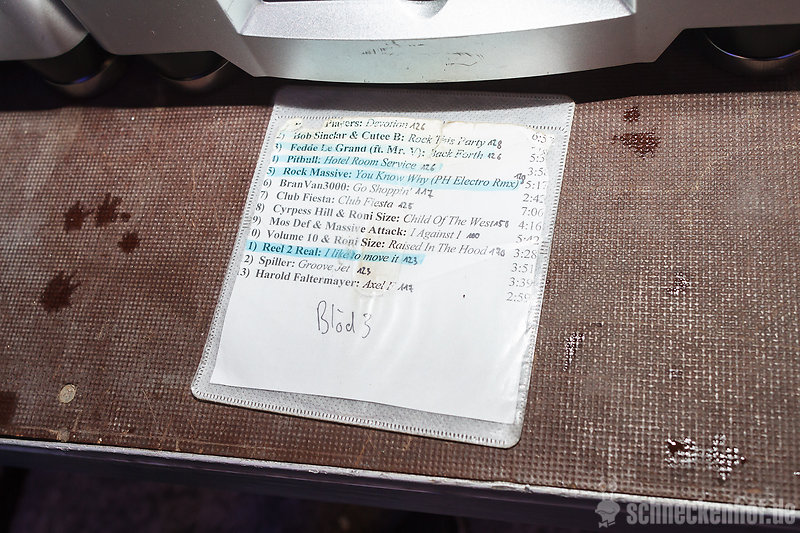 Players: Devotion 126
2) Bob Sinclar & Cutee B: Rock This Party 128
3) Fedde Le Grand (ft. Mr. V): Back Forth 126 5:3
4) Pitbull: Hotel Room Service 126 3:58
5) Rock Massive: You Know Why (PH Electro Rmx) 5:17
6) BranVan3000: Go Shoppin' 112 2:42
7) Club Fiesta: Club Fiesta 125 7:06
8) Cyrpess Hill & Roni Size: Child Of The West 4:16
9) Mos Def & Massive Attack: I Against I 5:42
0) Volume 10 & Roni Size: Raised In The Hood 170 3:28
1) Reel 2 Real: I like to move it 123 3:51
2) Spiller: Groove Jet 123 3:39
3) Harold Faltermayer: Axel F 2:59
Blöd 3
schneckenhof.de